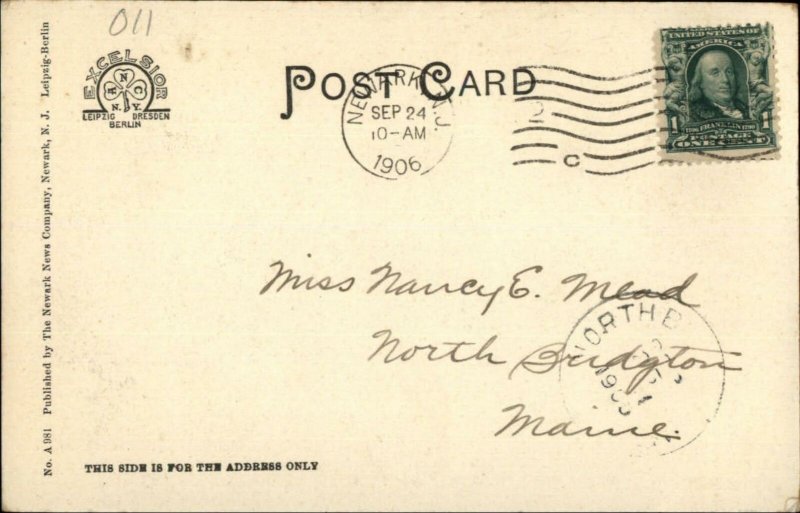 011
EXCELSIOR
A N C
N.Y.
LEIPZIG DRESDEN
BERLIN
POST CARD
NEWARK, N.J.
SEP 24
10-AM
1906
C
UNITED STATES OF
AMERICA
1 FRANKLIN 1
POSTAGE
ONE CENT
Miss Nancy E. Mead
North Bridgton
Maine.
NORTH B
1906
THIS SIDE IS FOR THE ADDRESS ONLY
No. A 981 Published by The Newark News Company, Newark, N. J. Leipzig-Berlin